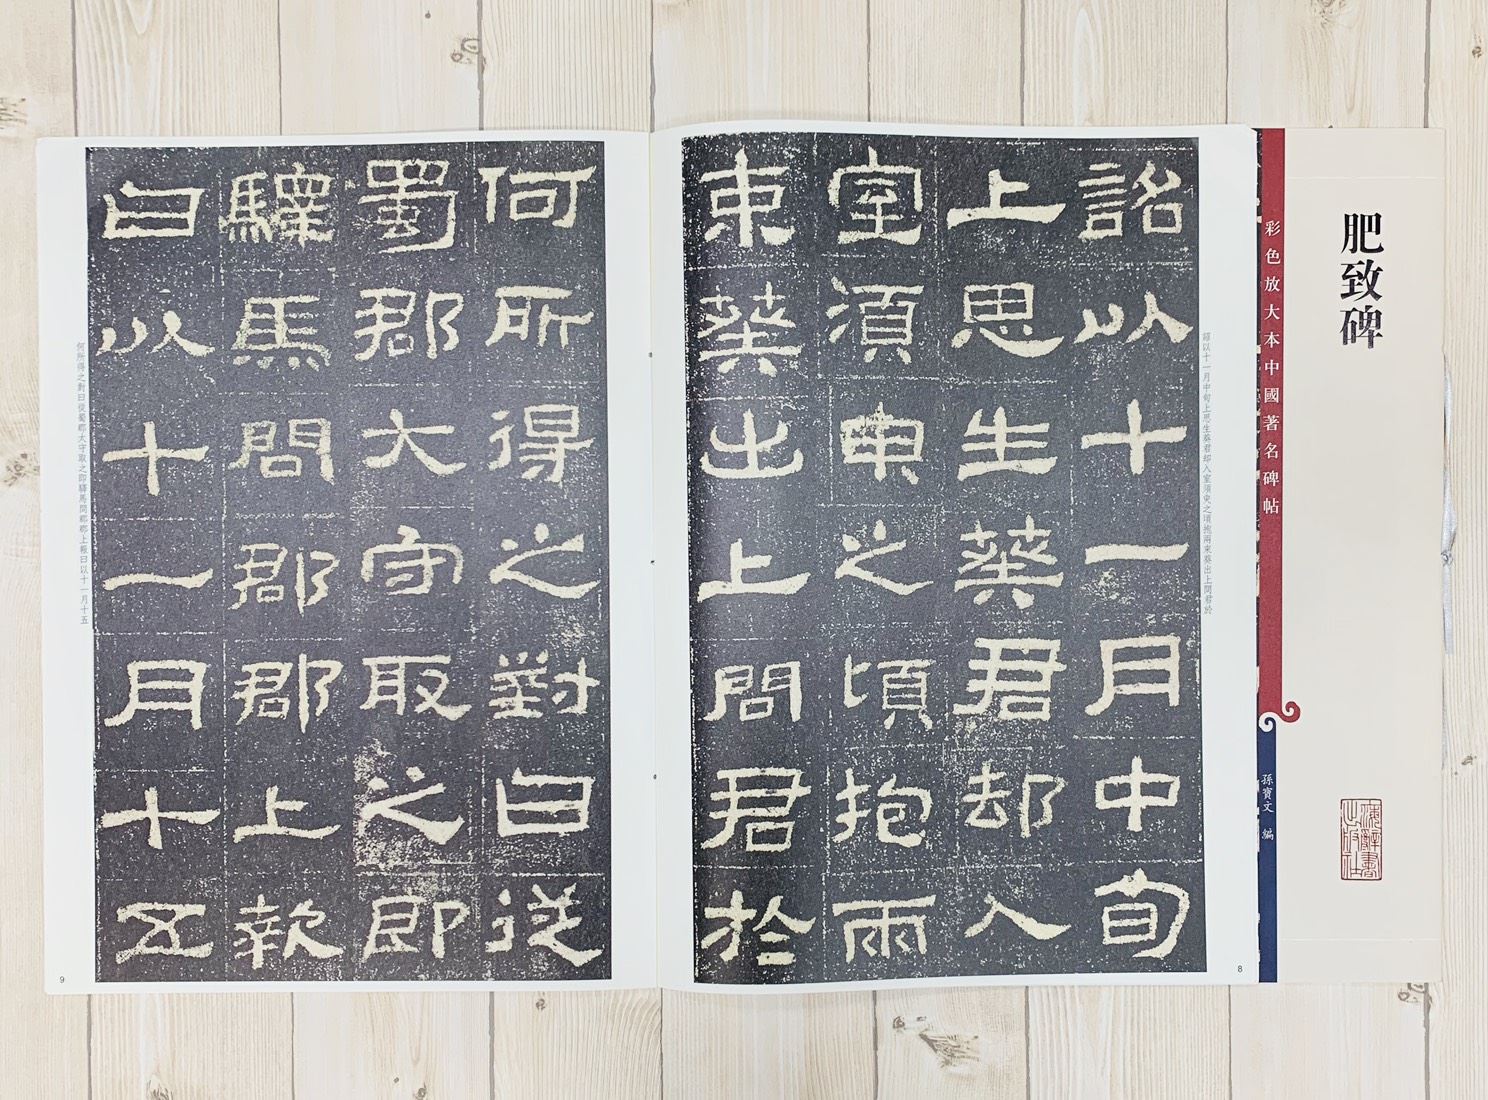 肥致碑
海辭書
出版社
彩色放大本中國著名碑帖
孫寶文 編
詔以十一月中旬上思生葵君却入室須臾之頃抱兩束葵出上問君於
詔以十一月中旬
上思生葵君却入
室須臾之頃抱兩
束葵出上問君於
8
何所得之對曰從
蜀郡大守取之即
驛馬問郡郡上報
曰以十一月十五
何所得之對曰從蜀郡太守取之即驛馬問郡郡上報曰以十一月十五
9